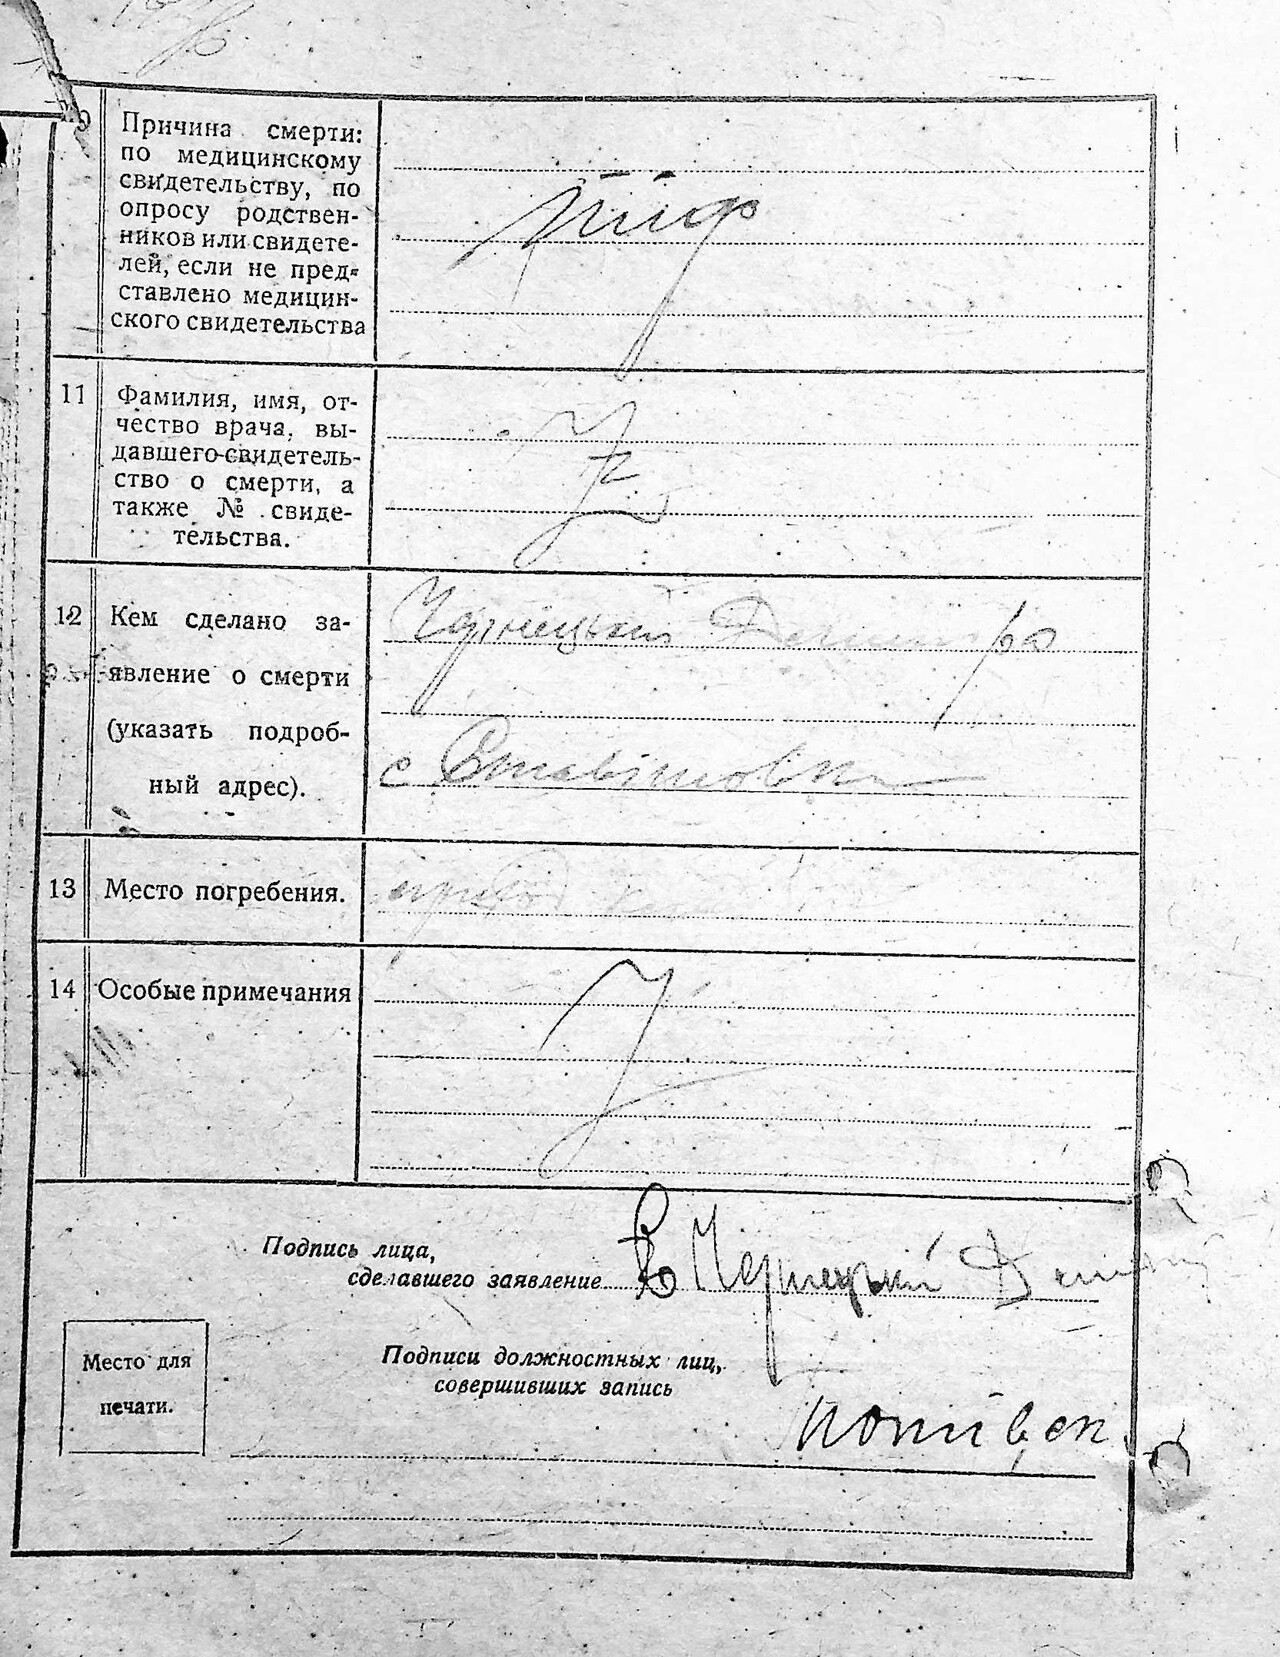 Причина смерти:
по медицинскому
свидетельству, по
опросу родствен-
ников или свидете-
лей, если не пред-
ставлено медицин-
ского свидетельства
тиф
11
Фамилия, имя, от-
чество врача, вы-
давшего свидетель-
ство о смерти, а
также № свиде-
тельства.
12
Кем сделано за-
явление о смерти
(указать подроб-
ный адрес).
Чернецький
с
13
Место погребения.
14
Особые примечания
Подпись лица,
сделавшего заявление
Чернецький
Место для
печати.
Подписи должностных лиц,
совершивших запись